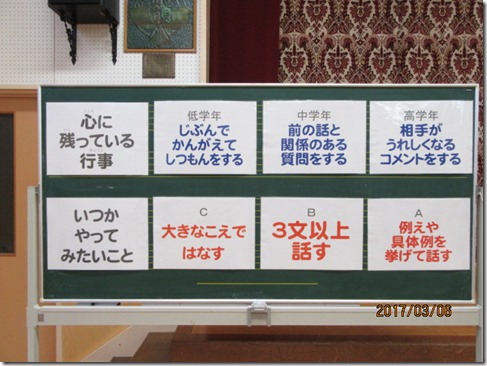 心に
残っている
行事
低学年
じぶんで
かんがえて
しつもんをする
中学年
前の話と
関係のある
質問をする
高学年
相手が
うれしくなる
コメントをする
いつか
やって
みたいこと
C
大きなこえで
はなす
B
3文以上
話す
A
例えや
具体例を
挙げて話す
2017/03/06